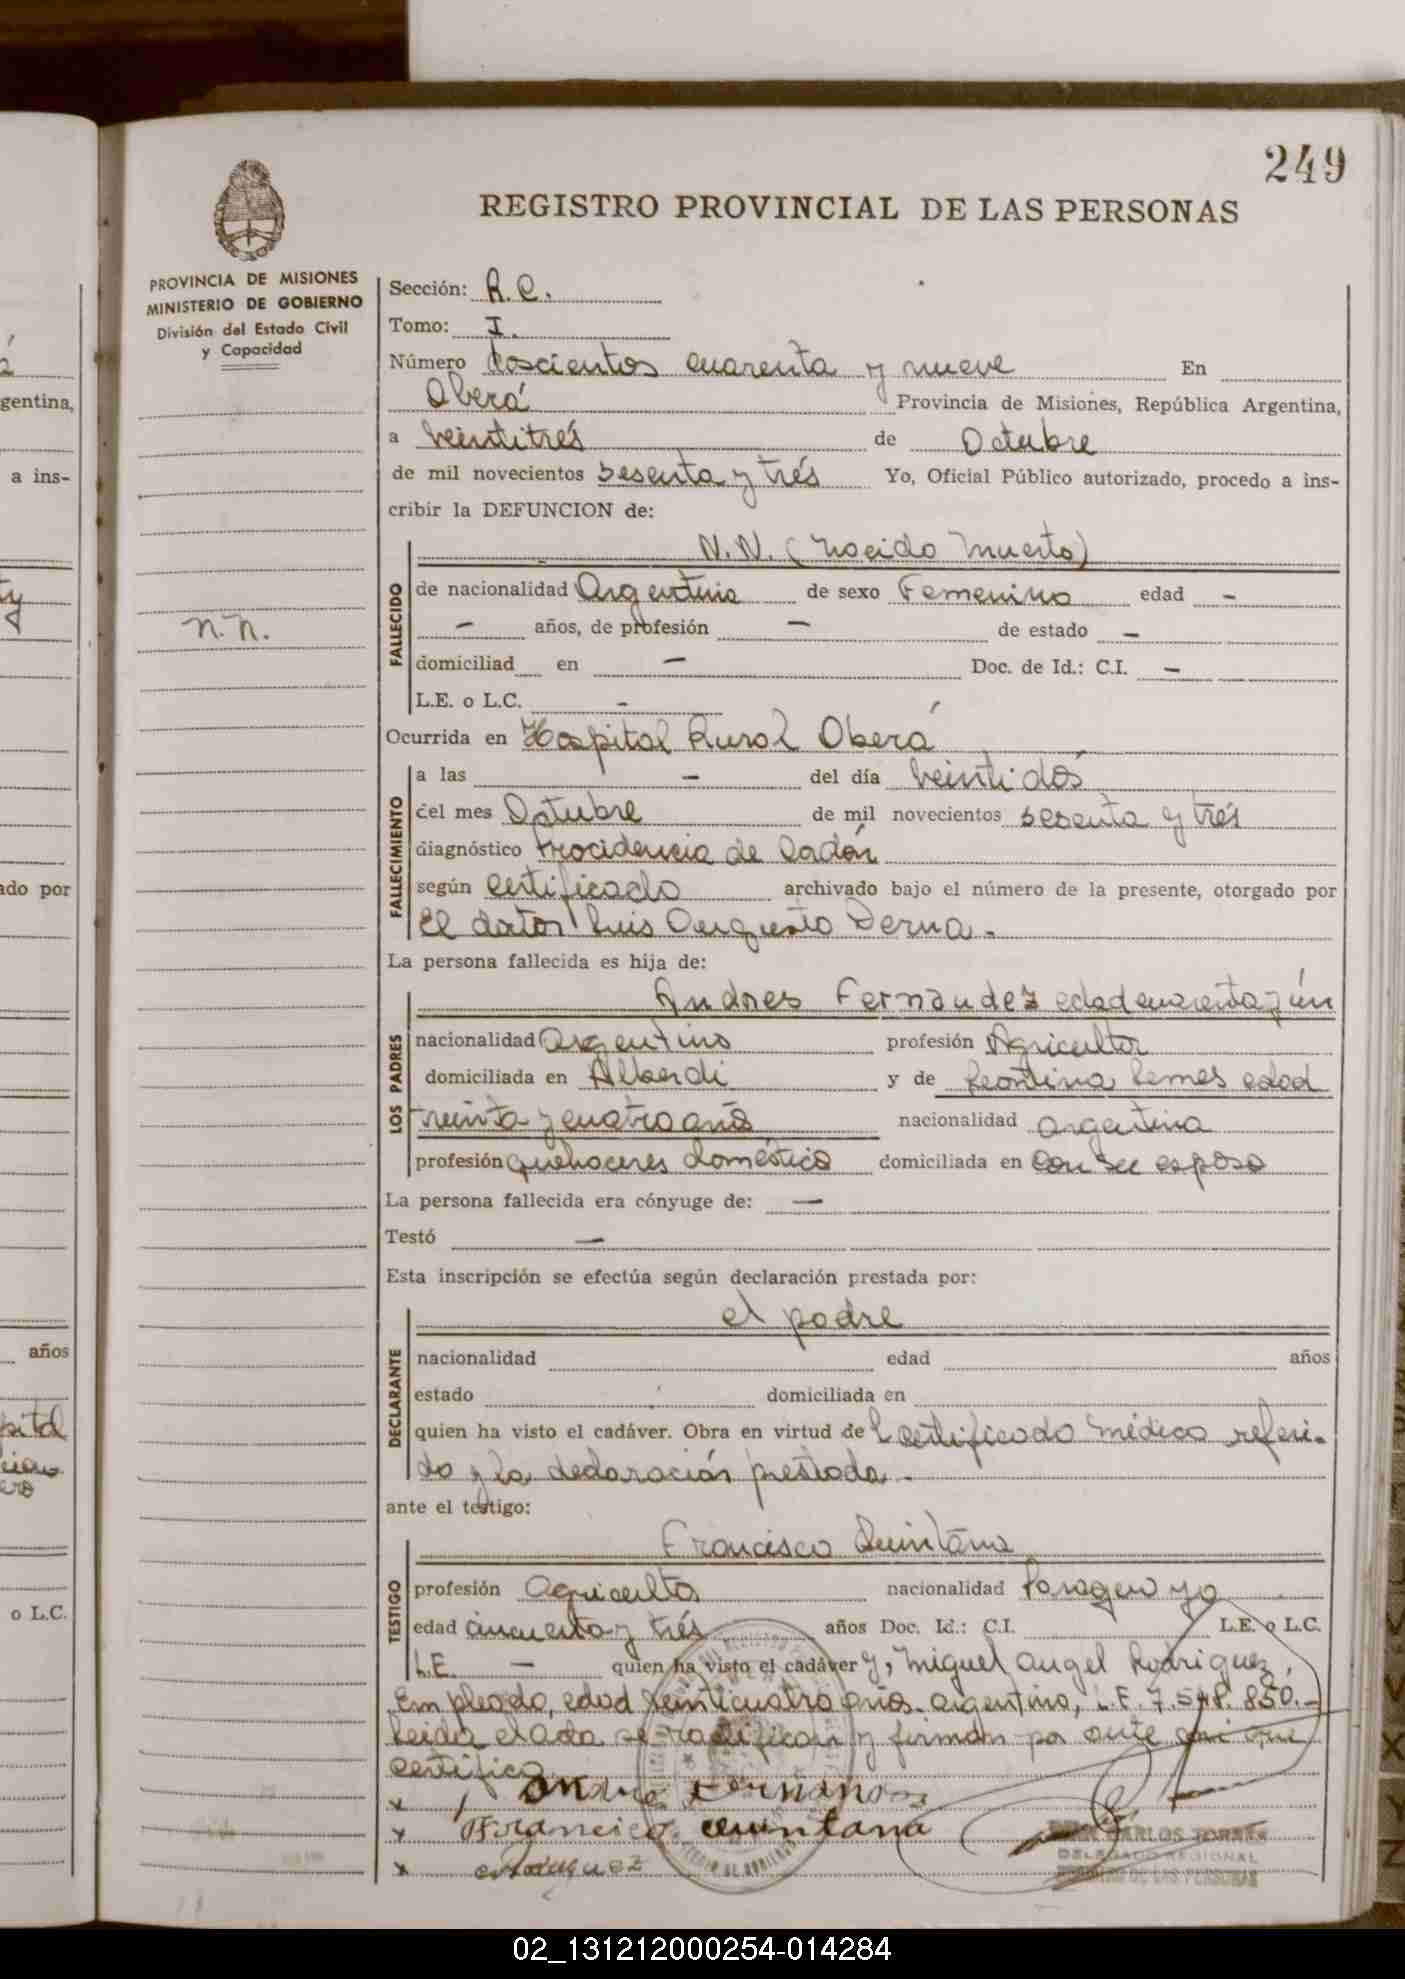 249
REGISTRO PROVINCIAL DE LAS PERSONAS
PROVINCIA DE MISIONES
MINISTERIO DE GOBIERNO
División del Estado Civil
y Capacidad
n.n.
Sección: R.C.
Tomo: I.
Número doscientos cuarenta y nueve En
Oberá Provincia de Misiones, República Argentina,
a veintitrés de Octubre
de mil novecientos sesenta y trés Yo, Oficial Público autorizado, procedo a ins-
cribir la DEFUNCION de:
FALLECIDO
N.N. (nacido muerto)
de nacionalidad Argentina de sexo Femenino edad -
- años, de profesión - de estado -
domiciliad en - Doc. de Id.: C.I. -
L.E. o L.C. -
Ocurrida en Hospital Rural Oberá
FALLECIMIENTO
a las - del día veintidós
del mes Octubre de mil novecientos sesenta y trés
diagnóstico Procidencia de Cordón
según certificado archivado bajo el número de la presente, otorgado por
el doctor Luis Augusto Derna.
La persona fallecida es hija de:
LOS PADRES
Andres Fernandez edad cuarenta y ún
nacionalidad argentino profesión Agricultor
domiciliada en Alberdi y de Leontina Lemes edad
treinta y cuatro años nacionalidad argentina
profesión quehaceres domésticos domiciliada en con su esposo
La persona fallecida era cónyuge de: -
Testó -
Esta inscripción se efectúa según declaración prestada por:
DECLARANTE
el padre
nacionalidad edad años
estado domiciliada en
quien ha visto el cadáver. Obra en virtud de certificado médico referi-
do y la declaración prestada.-
ante el testigo:
TESTIGO
Francisco Quintana
profesión agricultor nacionalidad Paraguayo
edad cincuenta y trés años Doc. Id.: C.I. L.E. o L.C.
L.E. - quien ha visto el cadáver y, Miguel Angel Rodriguez,
empleado, edad veinticuatro años, argentino, L.E. 7.548.850.-
Leida el acta se ratifican y firman por ante mi que
certifico
x Andres Fernandez
x Francisco Quintana
x Rodriguez
CARLOS TORRES
DELEGADO REGIONAL
REGISTRO DE LAS PERSONAS
gentina,
a ins-
ado por
años
o L.C.
02_131212000254-014284